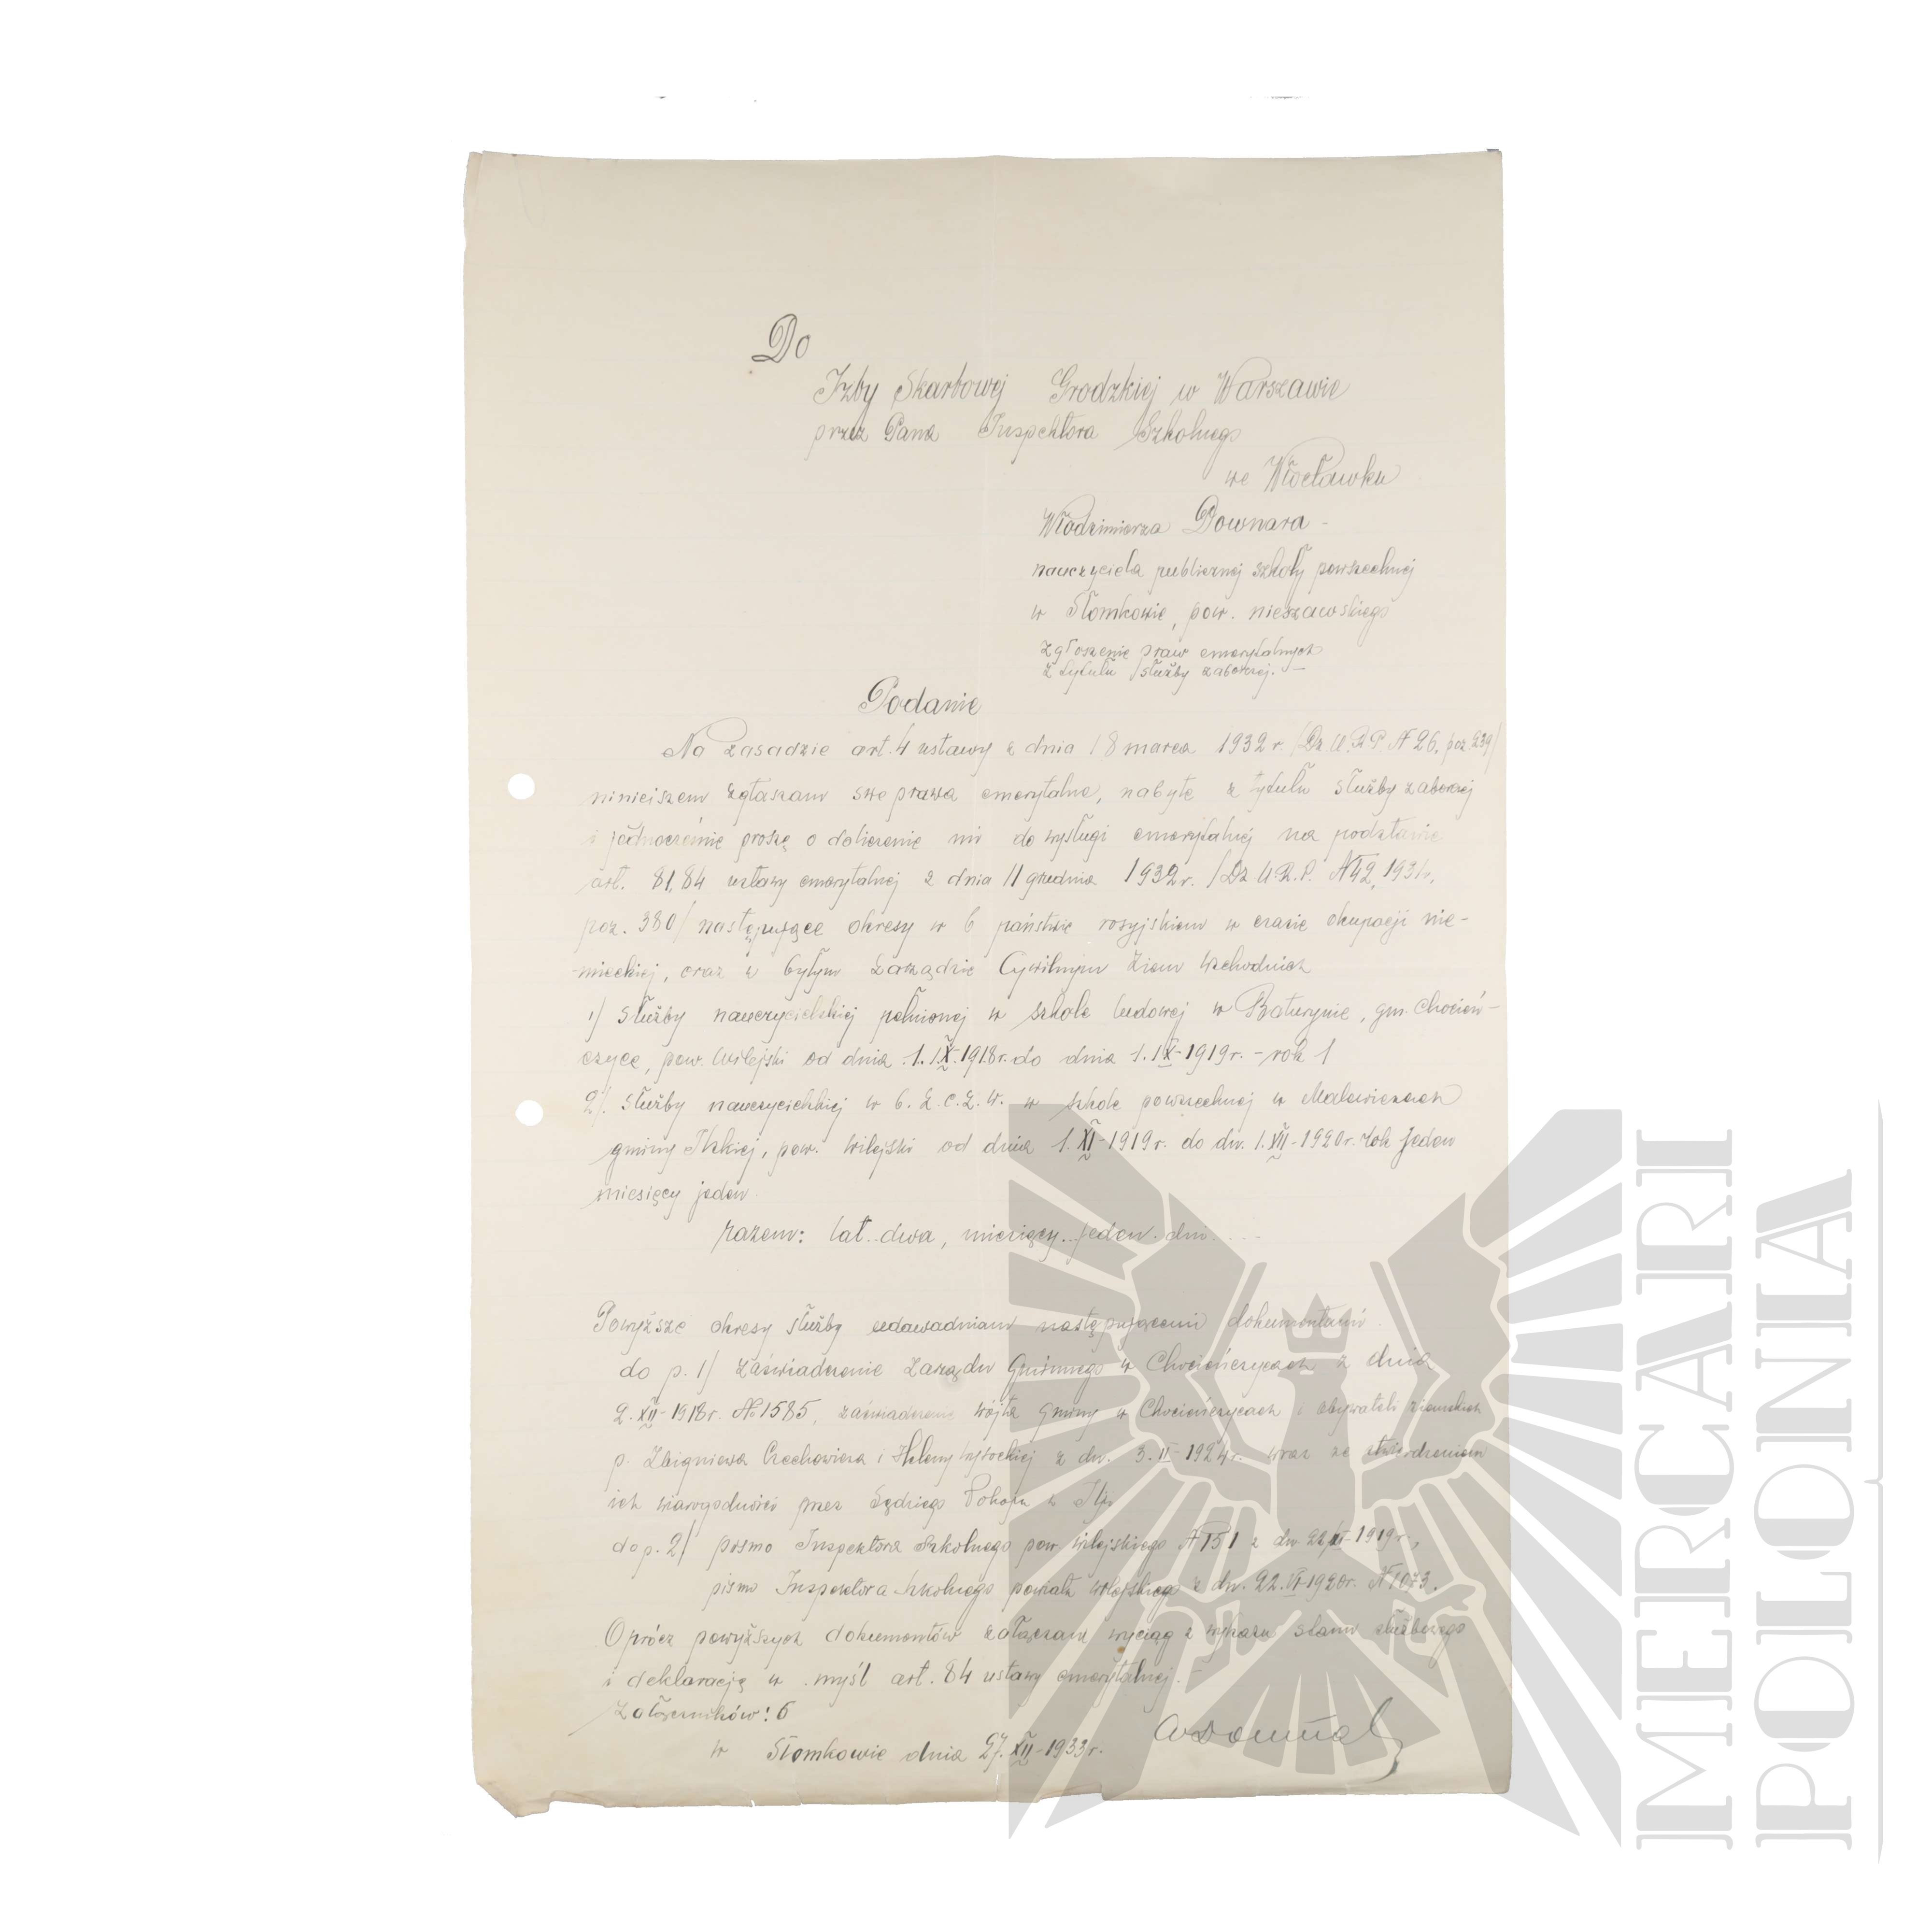 Do
Izby Skarbowej Grodzkiej w Warszawie
przez Pana Inspektora Szkolnego
we Włocławku
Włodzimierza Downara -
nauczyciela publicznej szkoły powszechnej
w Słomkowie, pow. nieszawskiego
zgłoszenie praw emerytalnych
z tytułu służby zaborczej. -
Podanie
Na zasadzie art. 4 ustawy z dnia 18 marca 1932 r. /Dz. U. R. P. N 26, poz. 239/
niniejszem zgłaszam swe prawa emerytalne, nabyte z tytułu służby zaborczej
i jednocześnie proszę o doliczenie mi do wysługi emerytalnej na podstawie
art. 81, 84 ustawy emerytalnej z dnia 11 grudnia 1932 r. /Dz. U. R. P. N 42, 1934r.
poz. 380/ następujące okresy w b państwie rosyjskiem w czasie okupacji nie-
mieckiej, oraz w byłym Zarządzie Cywilnym Ziem Wschodnich
1/ służby nauczycielskiej pełnionej w szkole ludowej w Baturynie, gm. Chocień-
czyce, pow. Wilejski od dnia 1. IX. 1918 r. do dnia 1. IX - 1919 r. - rok 1
2/. służby nauczycielskiej w b. Z. C. Z. W. w szkole powszechnej w Malawiczach
gminy Ilskiej, pow. Wilejski od dnia 1. XI - 1919 r. do dn. 1. XII - 1920 r. rok jeden
miesięcy jeden.
razem: lat..dwa, miesięcy..jeden. dni.....
Powyższe okresy służby udawadniam następującemi dokumentami.
do p. 1/ zaświadczenie Zarządu Gminnego w Chocieńczycach z dnia
2. XII - 1918 r. N 1585, zaświadczenie wójta gminy w Chocieńczycach i obywateli ziemskich
p. Zbigniewa Czechowicza i Heleny Wysockiej z dn. 3. II - 1924 r. wraz ze stwierdzeniem
ich wiarogodności przez Sędziego Pokoju w Ilji
do p. 2/ pismo Inspektora Szkolnego pow. wilejskiego N 151 z dn. 22/XI - 1919 r.,
pismo Inspektora Szkolnego powiatu wilejskiego z dn. 22. VI - 1920 r. N 1073.
Oprócz powyższych dokumentów załączam wyciąg z wykazu stanu służbowego
i deklarację w myśl art. 84 ustawy emerytalnej. -
Załączników: 6
w Słomkowie dnia 27. XII - 1933 r.
MERCARI
POLONIA